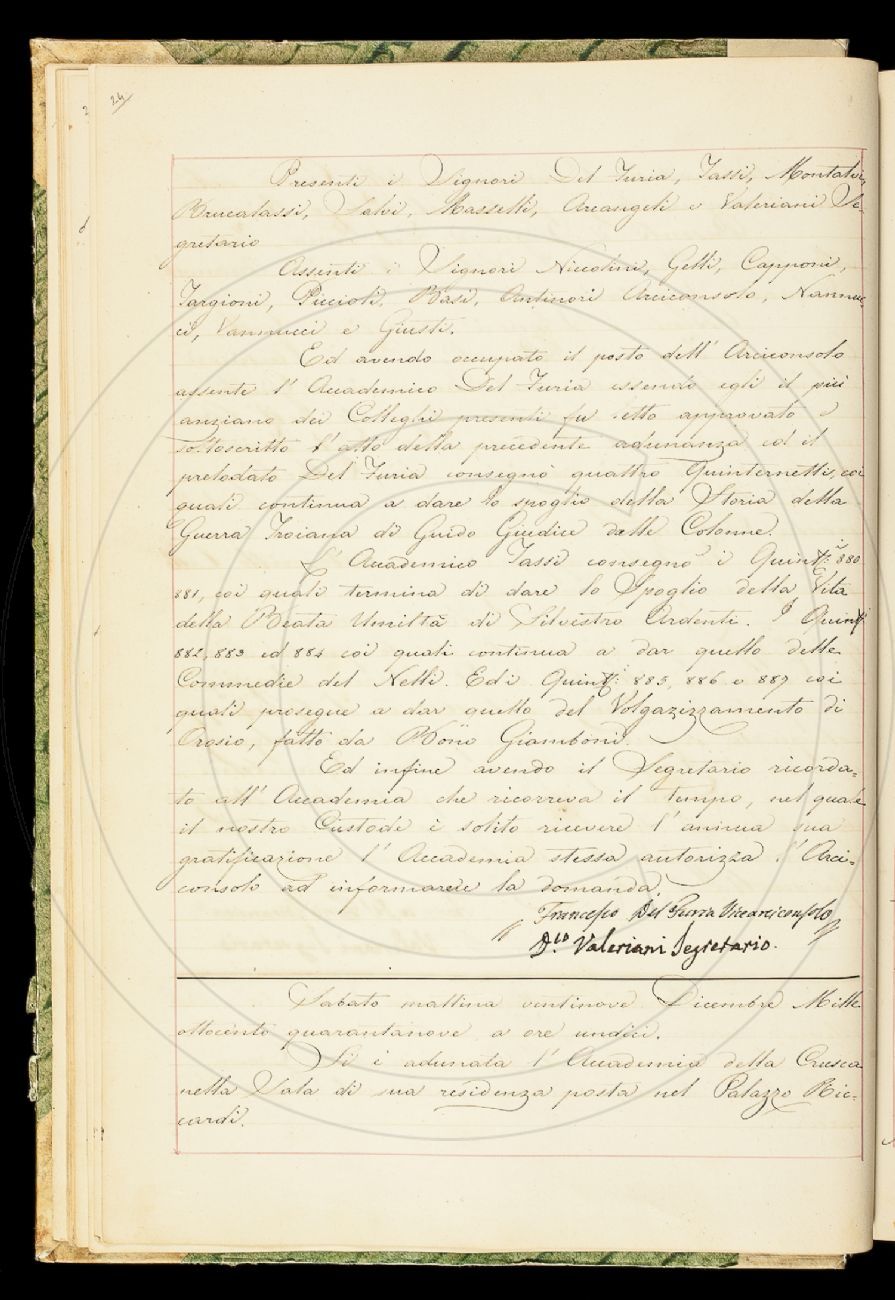 24
Presenti i Signori Del Furia, Tassi, Montalvi,
Brucalassi, Salvi, Masselli, Arcangeli e Valeriani Se-
gretario
Assenti i Signori Niccolini, Gelli, Capponi,
Targioni, Puccioti, Basi, Antinori Arciconsolo, Nannuc-
ci, Vannucci e Giusti.
Ed avendo occupato il posto dell' Arciconsolo
assente l' Accademico Del Furia essendo egli il più
anziano dei Colleghi presenti fu letto approvato e
sottoscritto l'atto della precedente adunanza ed il
prelodato Del Furia consegnò quattro Quinternetti, coi
quali continua a dare lo spoglio della Storia della
Guerra Troiana di Guido Giudice dalle Colonne.
L' Accademico Tassi consegnò i Quint.i 880
881, coi quali termina di dare lo Spoglio della Vita
della Beata Umiltà di Silvestro Ardenti. I Quint.i
882, 883 ed 884 coi quali continua a dar quello delle
Commedie del Nelli. Ed i Quint.i 885, 886 e 887 coi
quali prosegue a dar quello del Volgazizzamento di
Orosio, fatto da Bono Giamboni.
Ed infine avendo il Segretario ricorda-
to all' Accademia che ricorreva il tempo, nel quale
il nostro Custode è solito ricevere l'annua sua
gratificazione l' Accademia stessa autorizza l' Arci-
consolo ad informarne la domanda.
Francesco Del Furia Vicearciconsolo
D.co Valeriani Segretario.
Sabato mattina ventinove Dicembre Mille
ottocento quarantanove a ore undici.
Si è adunata l' Accademia della Crusca
nella Sala di sua residenza posta nel Palazzo Ric-
cardi.